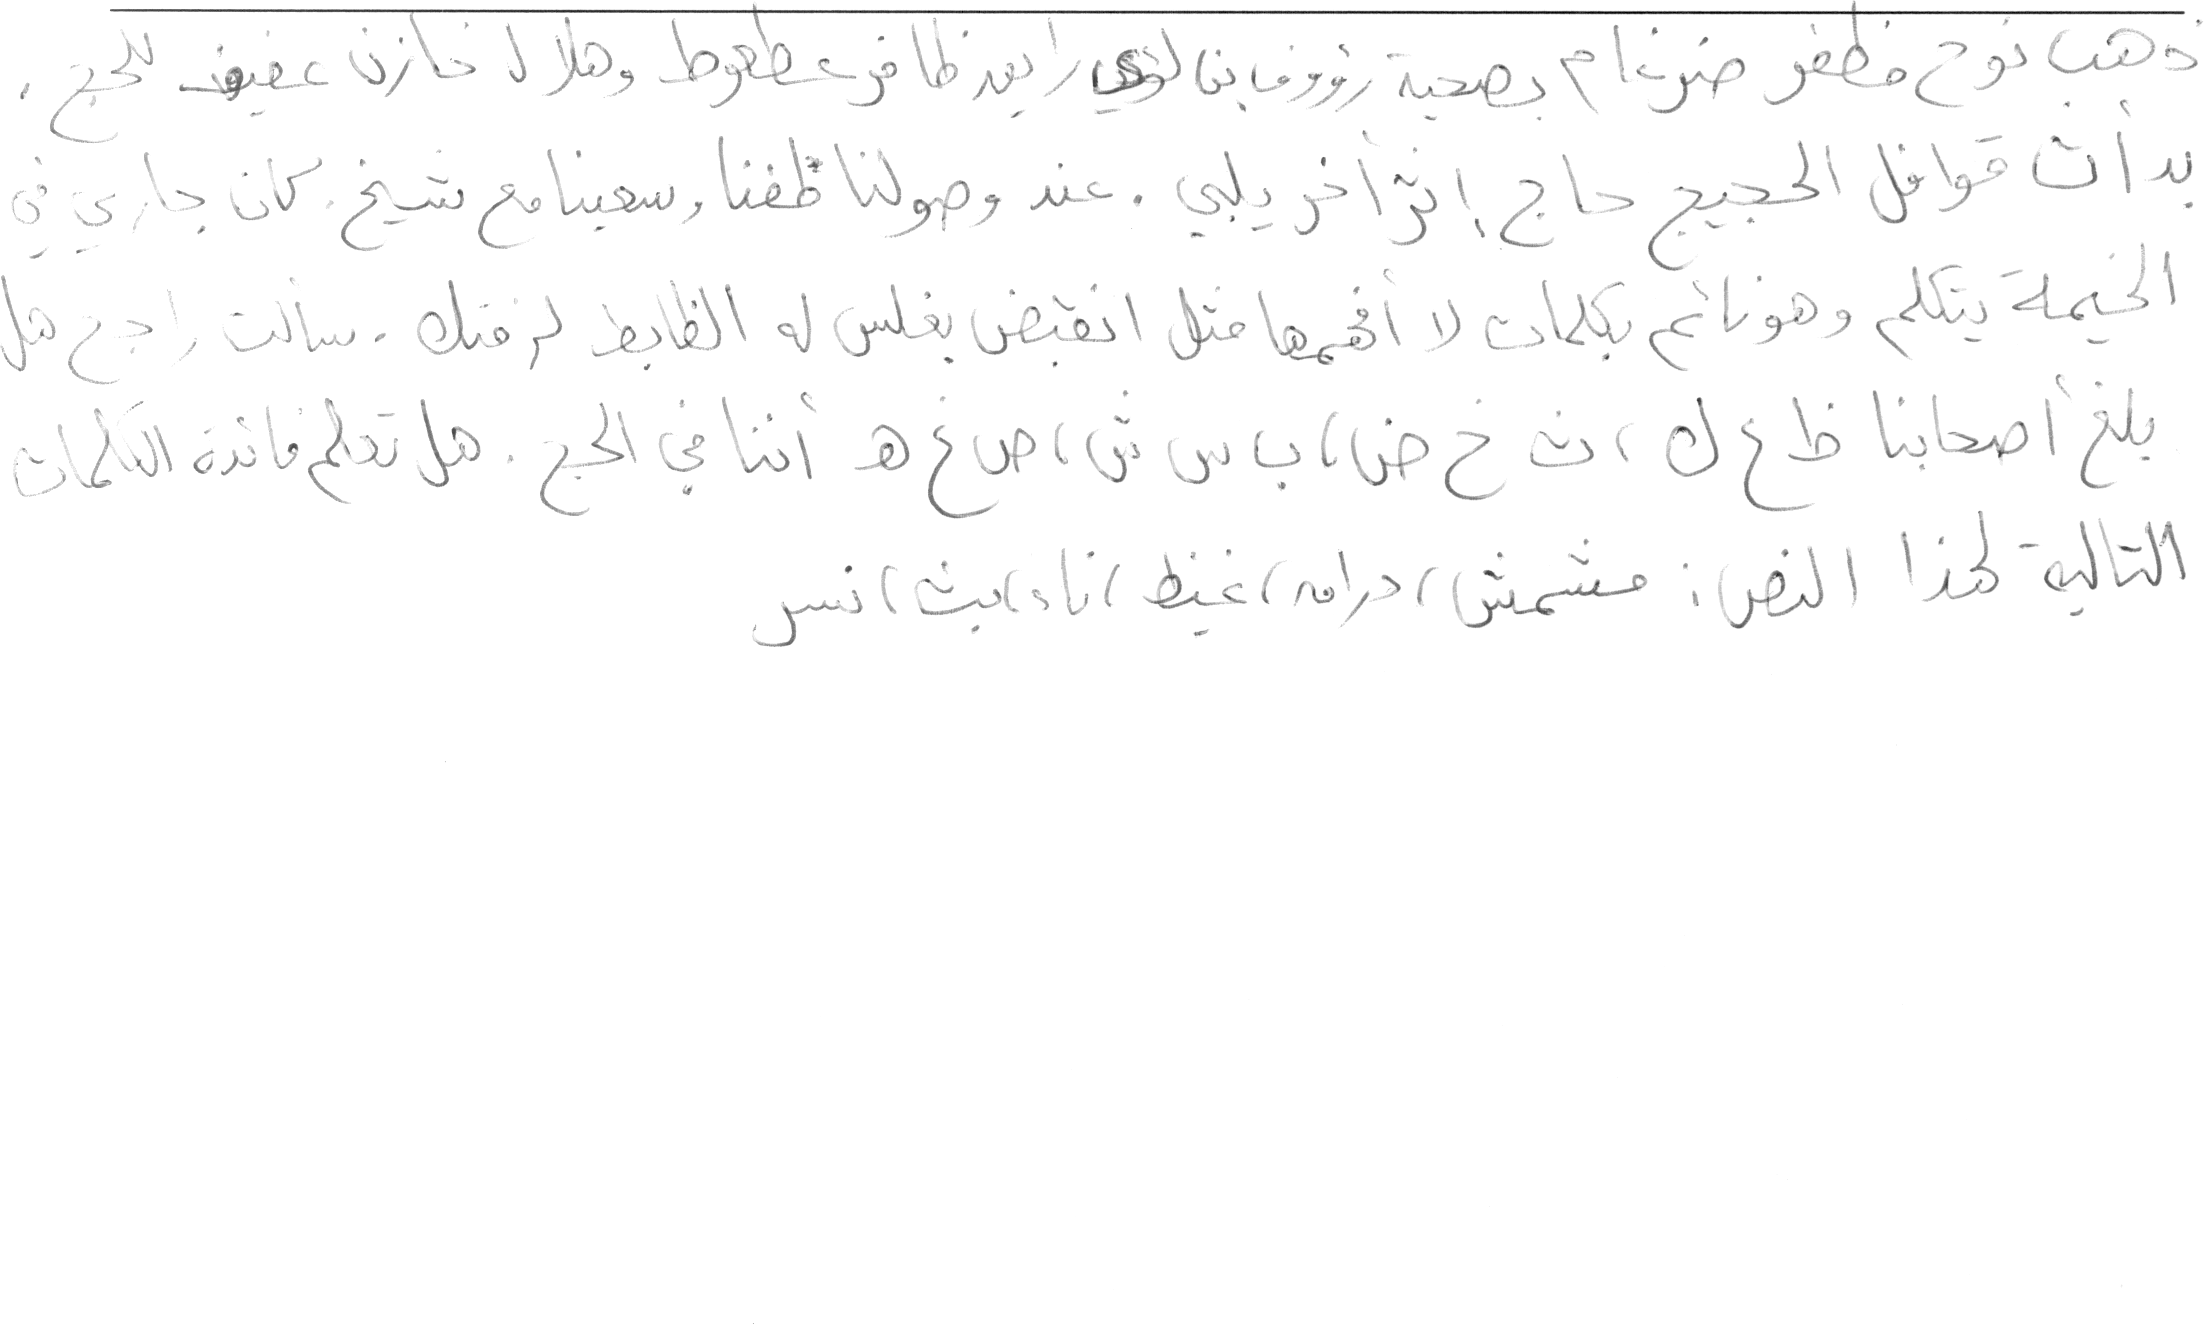 ذهب نوح مظفر ضرغام بصحبة رؤوف بن لؤي رايد ظافر عطعوط وهلال خازن عفيف للحج .
بدأت قوافل الحجيج حاج إثر أخر يلبي . عند وصولنا طفنا وسعينا مع شيخ . كان جاري في
الخيمة يتكلم وهو نائم بكلمات لا أفهمها مثل انقبض بغلس له الظابط لم فتك . سألت راجح هل
بلغ أصحابنا ظ ع ك ، ث خ ض ، ب س ش ، ص غ هـ أننا في الحج . هل تعلم فائدة الكلمات
التالية لهذا النص : مشمش ، درامه ، غيظ ، ناء ، بث ، نسر